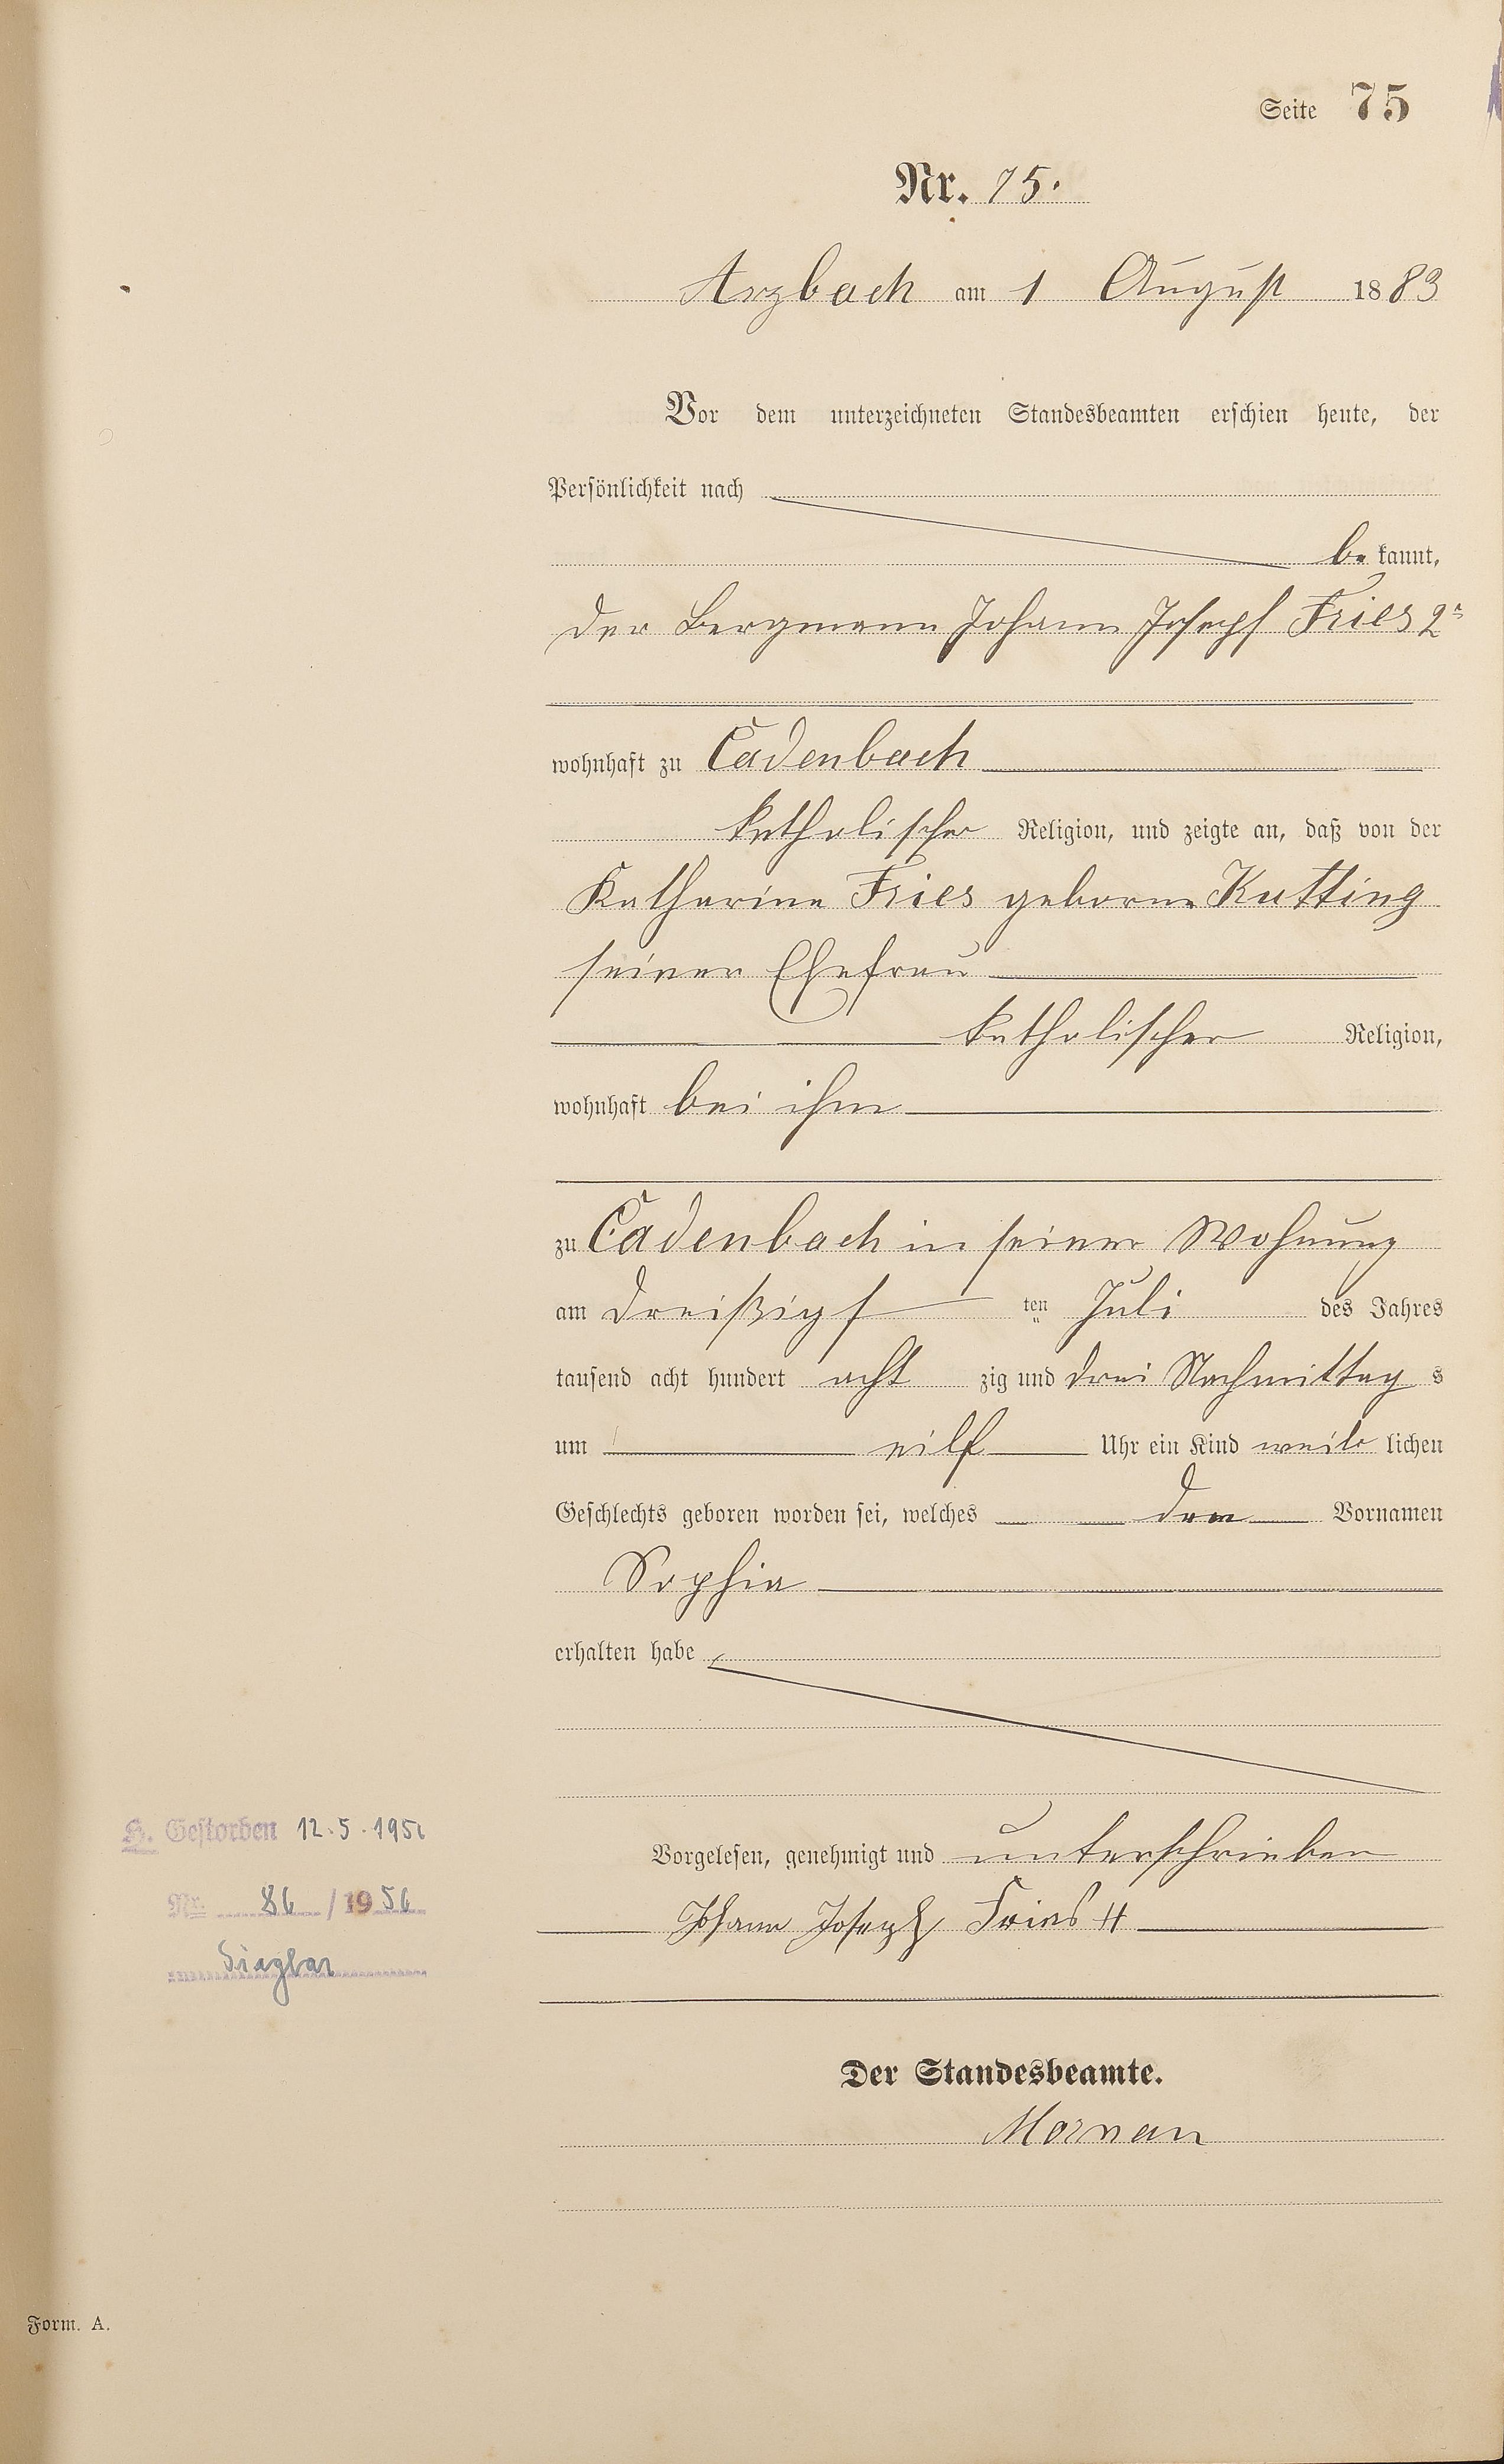 Seite 75
Nr. 75.
Arzbach am 1 August 1883
Vor dem unterzeichneten Standesbeamten erschien heute, der
Persönlichkeit nach
be kannt,
der Bergmann Johann Joseph Fries 2r
wohnhaft zu Cadenbach
katholischer Religion, und zeigte an, daß von der
Katharina Fries geborne Kutting
seiner Ehefrau
katholischer Religion,
wohnhaft bei ihm
zu Cadenbach in seiner Wohnung
am dreißigs ten Juli des Jahres
tausend acht hundert acht zig und drei Nachmittag s
um eilf Uhr ein Kind weib lichen
Geschlechts geboren worden sei, welches den Vornamen
Sophia
erhalten habe
Vorgelesen, genehmigt und unterschrieben
Johann Joseph Fries II
Der Standesbeamte.
H. Gestorben 12.5.1956
Nr. 86/1956
Form. A.